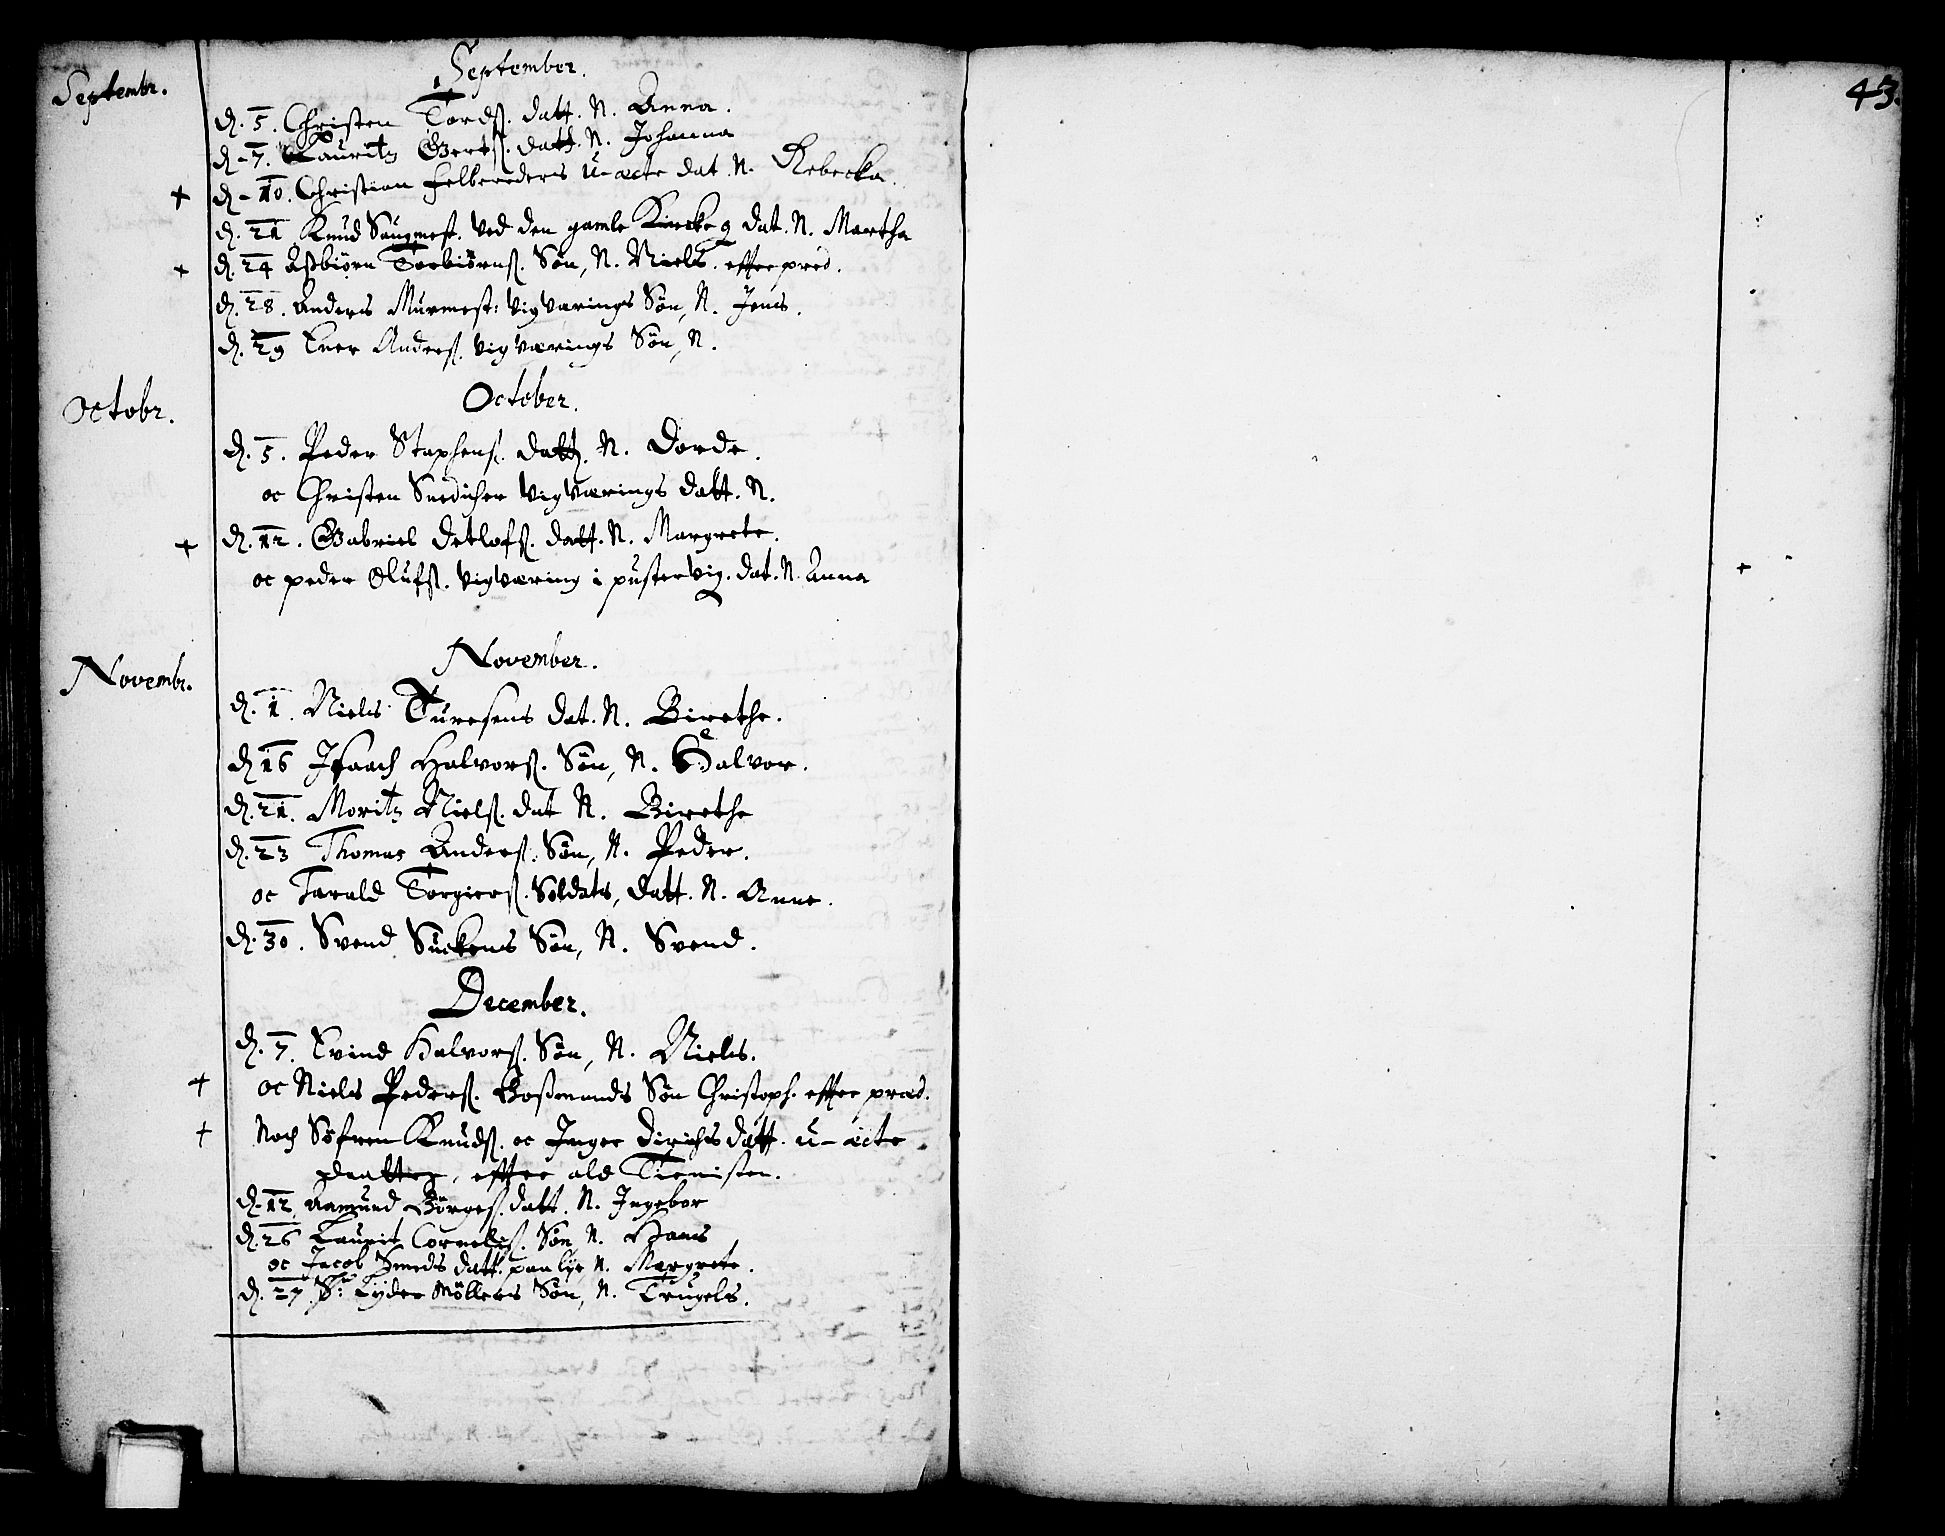 Septembr.
September.
d. 5. Christen Tords. datt. N. Anna.
d. 7. Lauritz Gerts. datt. N. Johanna
+ d. 10. Christian Felbereders u-æcte dat. N. Rebecka.
d. 21 Knud Saugmest. ved den gamle Kircke g dat. N. Martha
+ d. 24 Asbiørn Torbiørns. Søn, N. Niels. effter præd.
d. 28. Anders Murmest: Vigværings Søn, N. Jens.
d. 29 Iver Anders. Vigværings Søn, N.
Octobr.
October.
d. 5. Peder Staphens. datt. N. Dorde.
oc Christen Snedicher Vigværings datt. N.
+ d. 12. Gabriel Detlofs. datt. N. Margrete.
oc peder Olufs. Vigværing i pustervig. dat. N. Anna
Novembr.
November.
d. 1. Niels Turesens dat. N. Birethe.
d. 16 Isaach Halvors. Søn, N. Halvor.
d. 21. Moritz Niels. dat N. Birethe
d. 23 Thomas Anders. Søn, N. Peder.
oc Tarald Torgiers. Soldats, datt. N. Anne.
d. 30. Svend Suckens Søn, N. Svend.
December.
d. 7. Evind Halvors. Søn, N. Niels.
+ oc Niels Peders. Bosmands Søn Christoph. effter præd.
+ Noch Søfren Knuds. oc Inger Dirichs datt. u-æcte
effter ald Tienisten.
d. 12. Aamund Børges. datt. N. Ingebor
d. 26 Laurit Cornelis. Søn N. Hans
oc Jacob Smeds datt. paa lye N. Margrete.
d. 27. Sr. Lyder Møllers Søn, N. Trugels.
43.
+